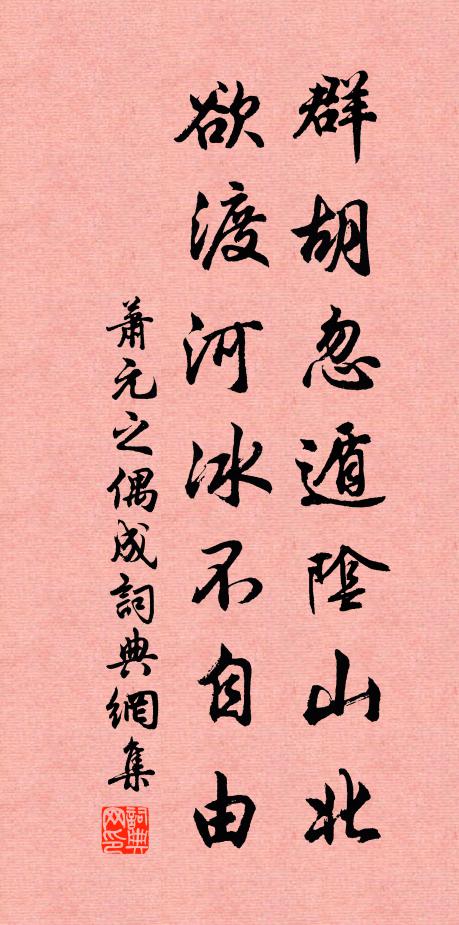 群胡忽遁陰山北
欲渡河冰不自由
蕭元之偶成詞典網集
詞典網印